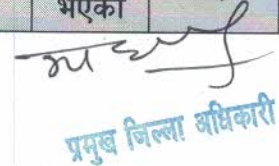 भएको
प्रमुख जिल्ला अधिकारी